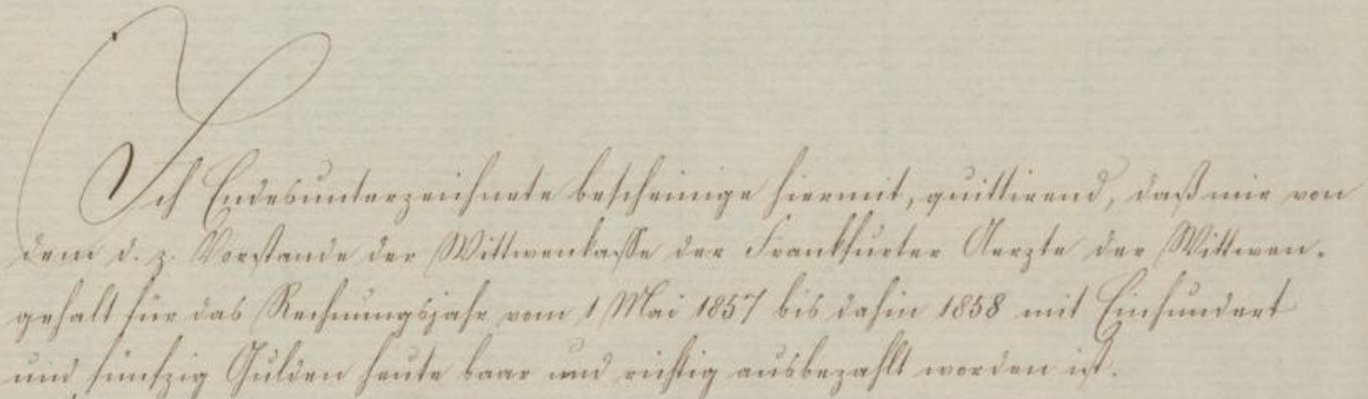 Ich Endesunterzeichnete bescheinige hiermit, quittirend, daß mir von
dem d. z. Vorstande der Wittwenkasse der Frankfurter Aerzte der Wittwen-
gehalt für das Rechnungsjahr vom 1 Mai 1857 bis dahin 1858 mit Einhundert
und fünfzig Gulden heute baar und richtig ausbezahlt worden ist.